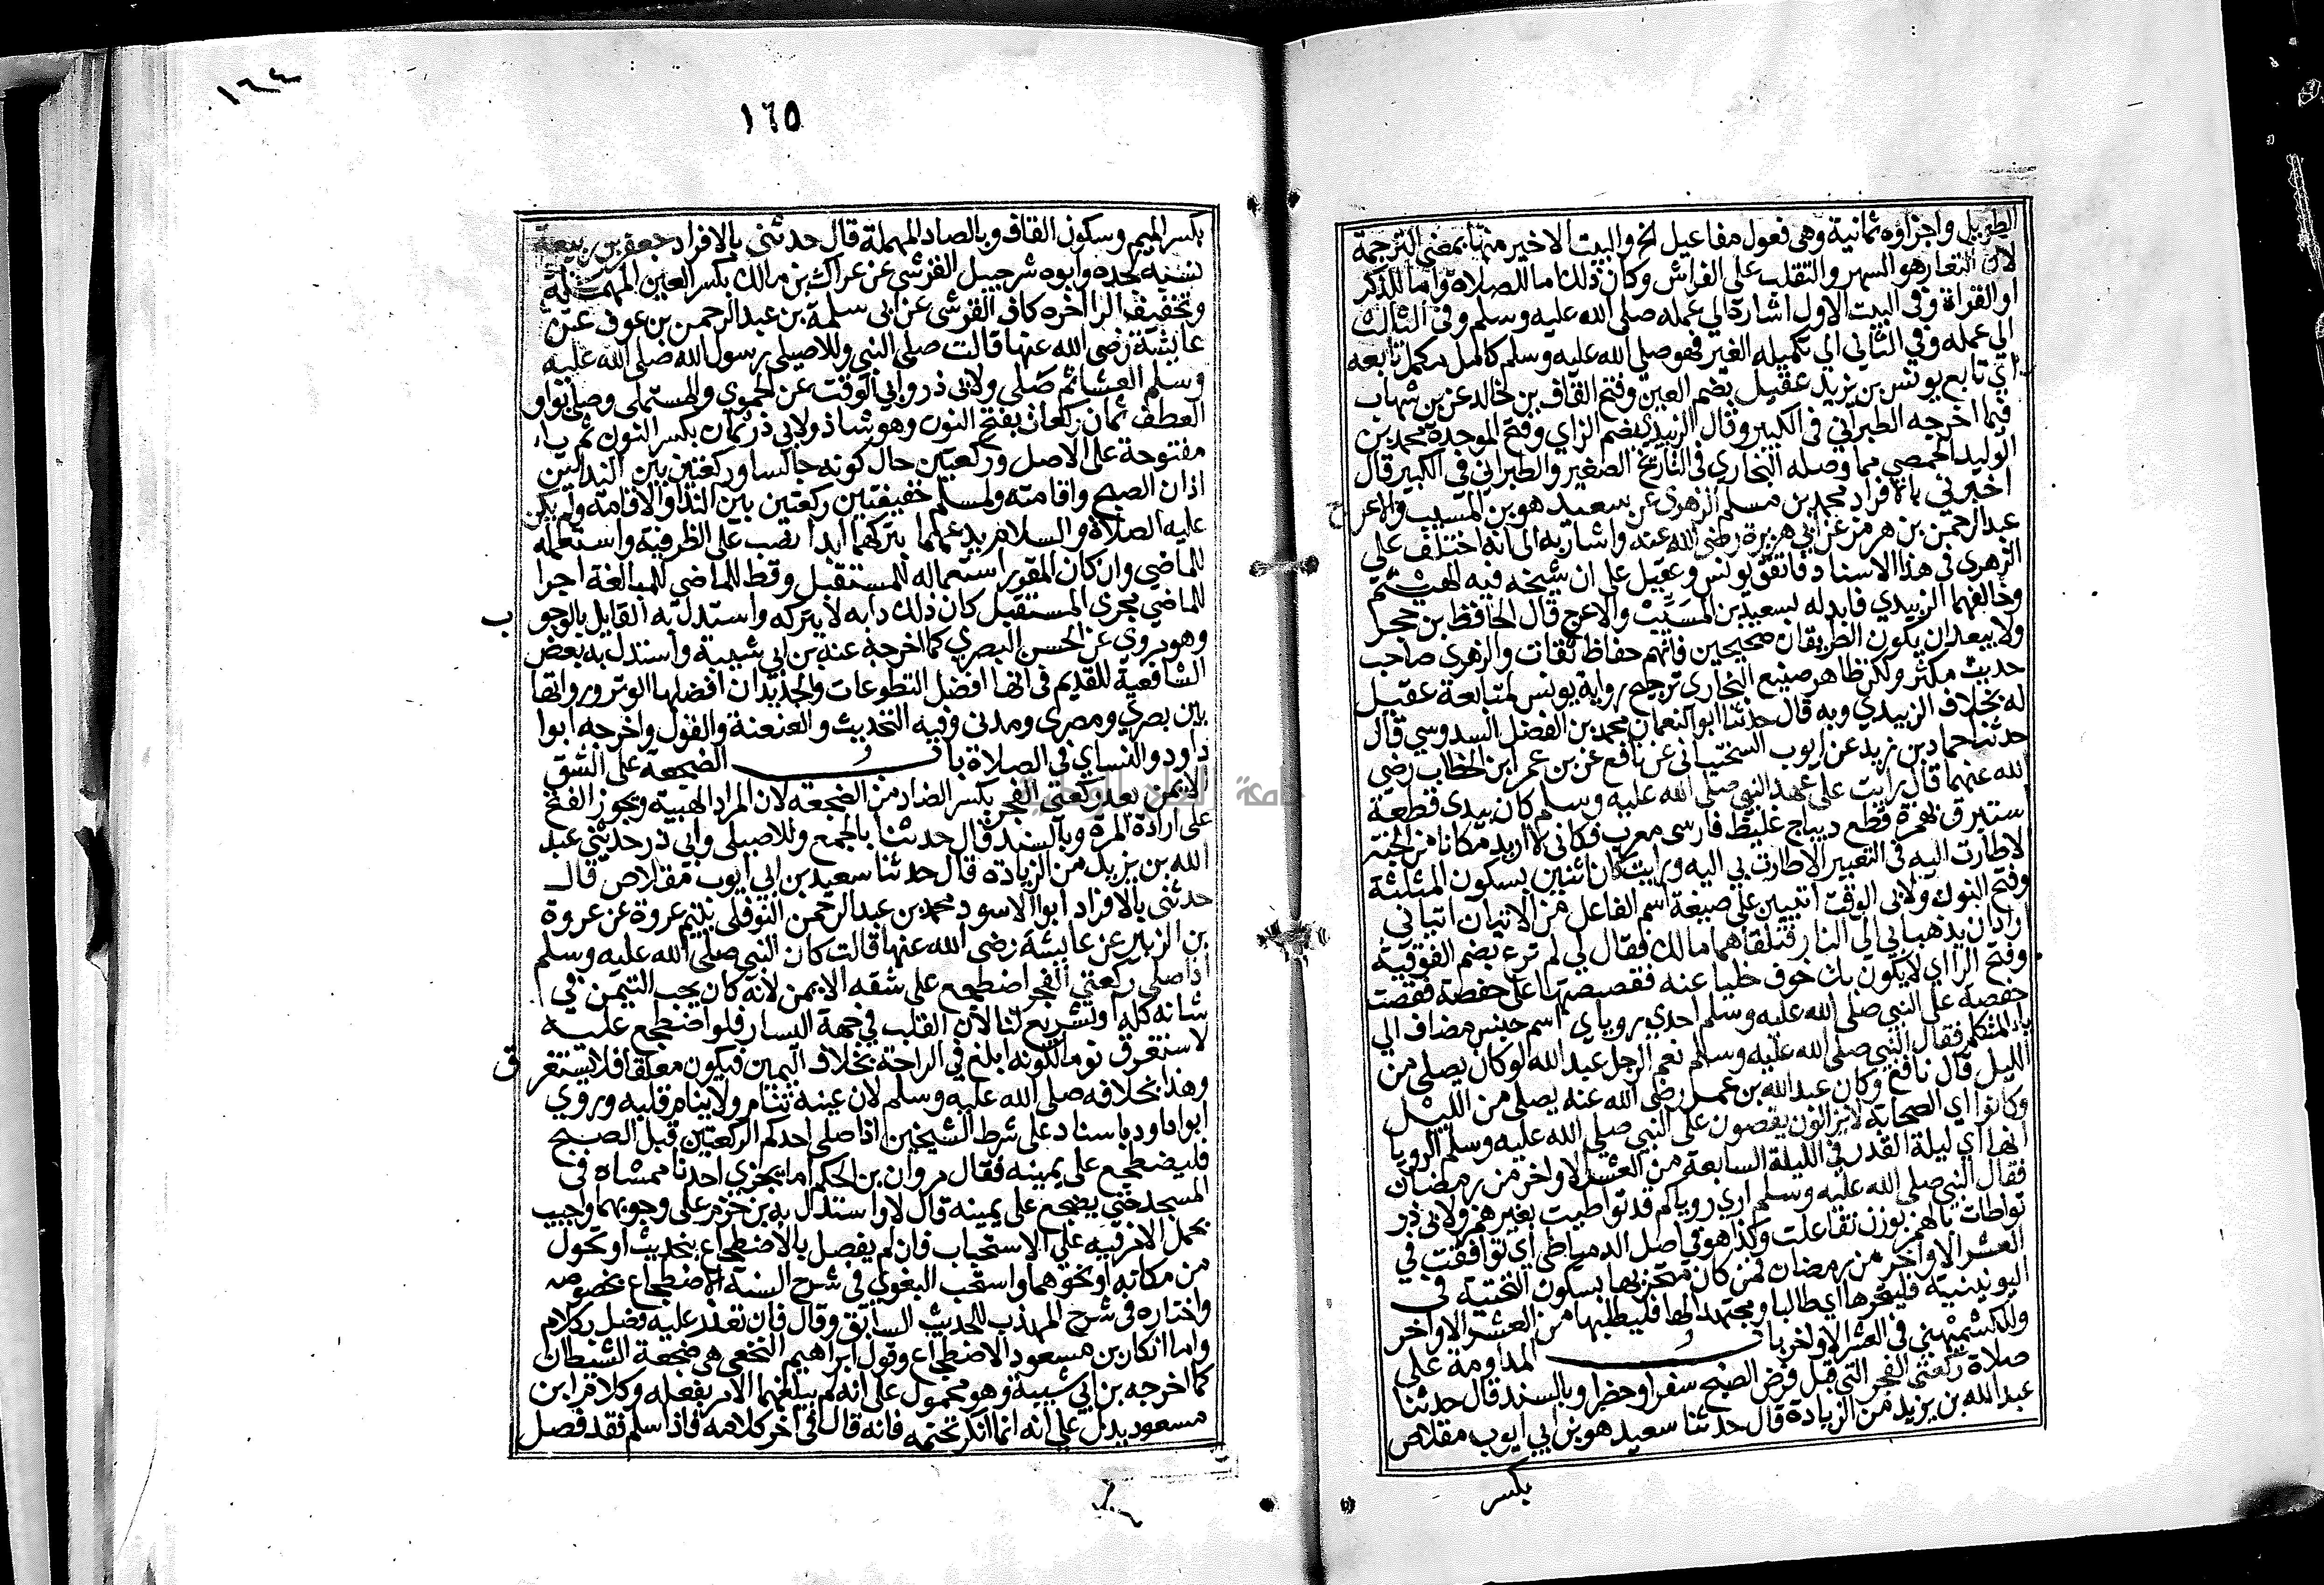 الطويل واجزاؤه ثمانية وهي فعول مفاعيل الخ والبيت الاخير منها بمعنى الترجمة
لان التعار هو السهر والتقلب على الفراش وكان ذلك اما للصلاة واما للذكر
او القراة وفي البيت الاول اشارة الي عمله صلى الله عليه وسلم وفي الثالث
الي عمله وفي الثاني الي تكميله الغير فهو صلى الله عليه وسلم كامل مكمل تابعه
اي تابع يونس بن يزيد عقيل بضم العين وفتح القاف بن خالد عن بن شهاب
فيما اخرجه الطبراني في الكبير وقال الزبيدي بضم الزاي وفتح الموحدة محمد بن
الوليد الحمصي مما وصله البخاري في التاريخ الصغير والطبراني في الكبير قال
اخبرني بالافراد محمد بن مسلم الزهري عن سعيد هو بن المسيب والاعرج
عبد الرحمن بن هرمز عن ابي هريرة رضي الله عنه واشار به الى انه اختلف علي
الزهري في هذا الاسناد فاتفق يونس وعقيل على ان شيخه فيه الهيثم
وخالفهما الزبيدي فابدله بسعيد بن المسيب والاعرج قال الحافظ بن حجر
ولا يبعد ان يكون الطريقان صحيحين فانهم حفاظ ثقات والزهري صاحب
حديث مكثر ولكن ظاهر صنيع البخاري ترجيح رواية يونس لمتابعة عقيل
له بخلاف الزبيدي وبه قال حدثنا ابو النعمان محمد بن الفضل السدوسي قال
حدثنا حماد بن زيد عن ايوب السختياني عن نافع عن بن عمر ابن الخطاب رضي
الله عنهما قال رايت على عهد النبي صلى الله عليه وسلم كان بيدي قطعة
ستبرق بهمزة قطع ديباج غليظ فارسي معرب فكاني لا اريد مكانا من الجنة
لا طارت اليه في التعبير الا طارت بي اليه ورايت كان اثنين بسكون المثلثة
وفتح النون ولابي الوقت اتيين على صيغة اسم الفاعل من الاتيان اتياني
رادان يذهبا بي الى النار فتلقاهما ملك فقال لي لم ترع بضم الفوقية
وفتح الرا اي لا يكون بك خوف خليا عنه فقصصتها على حفصة فقصت
حفصة على النبي صلى الله عليه وسلم احدي روياي اسم جنس مضاف الي
يا المتكلم فقال النبي صلى الله عليه وسلم نعم الرجل عبد الله لو كان يصلي من
الليل قال نافع وكان عبد الله بن عمر رضي الله عنه يصلي من الليل
وكانوا اي الصحابة لا يزالون يقصون على النبي صلى الله عليه وسلم الرويا
انها اي ليلة القدر في الليلة السابعة من العشر الاواخر من رمضان
فقال النبي صلى الله عليه وسلم اري روياكم قد تواطيت بغير همز ولابي ذر
تواطات بالهمز بوزن تفاعلت وكذا هو في اصل الدمياطي اي توافقت في
العشر الاواخر من رمضان فمن كان متحريها بسكون التحتية في
اليونينية فليتحرها اي طالبا ومجتهدا لها فليطلبها من العشر الاواخر
وللكشميهني في العشر الاواخر باب المداومة على
صلاة ركعتي الفجر التي قبل فرض الصبح سفرا وحضرا وبالسند قال حدثنا
عبد الله بن يزيد من الزيادة قال حدثنا سعيد هو بن ابي ايوب مقلاص
بكسر
١٦٤
١٦٥
بكسر الميم وسكون القاف وبالصاد المهملة قال حدثني بالافراد جعفر بن ربيعة
نسبه لجده وابوه شرحبيل القرشي عن عراك بن مالك بكسر العين المهملة
وتخفيف الرا اخره كاف القرشي عن ابي سلمة بن عبد الرحمن بن عوف عن
عايشة رضي الله عنها قالت صلى النبي وللاصيلي رسول الله صلى الله عليه
وسلم العشا ثم صلى ولابي ذر وابي الوقت عن الحموي والمستملي وصلى بواو
العطف ثمان ركعات بفتح النون وهو شاذ ولابي ذر ثمان بكسر النون ثم ياء
مفتوحة على الاصل وركعتين حال كونه جالسا وركعتين بين الندائين
اذان الصبح واقامته ولمسلم خفيفتين ركعتين بين الندا والاقامة ولم يكن
عليه الصلاة والسلام يدعهما يتركهما ابدا نصب على الظرفية واستعمله
للماضي وان كان المقرر استعماله للمستقبل وقط للماضي للمبالغة اجرا
للماضي مجرى المستقبل كان ذلك دابه لا يتركه واستدل به القايل بالوجوب
وهو مروي عن الحسن البصري كما اخرجه عنه بن ابي شيبة واستدل به بعض
الشافعية للقديم في انها افضل التطوعات والجديد ان افضلها الوتر ورواتها
بين بصري ومصري ومدني وفيه التحديث والعنعنة والقول واخرجه ابوا
داود والنساي في الصلاة باب الضجعة على الشق
الايمن بعد ركعتي الفجر بكسر الضاد من الضجعة لان المراد الهيية ويجوز الفتح
على ارادة المرة وبالسند قال حدثنا بالجمع وللاصيلي وابي ذر حدثني عبد
الله بن يزيد من الزيادة قال حدثنا سعيد بن ابي ايوب مقلاص قال
حدثني بالافراد ابوا الاسود محمد بن عبد الرحمن النوفلي يتيم عروة عن عروة
بن الزبير عن عايشة رضي الله عنها قالت كان النبي صلى الله عليه وسلم
اذا صلى ركعتي الفجر اضطجع على شقه الايمن لانه كان يحب التيمن في
شانه كله او تشريع لنا لان القلب في جهة اليسار فلو اضطجع عليه
لاستغرق نوما لكونه ابلغ في الراحة بخلاف اليمين فيكون معلقا فلا يستغرق
وهذا بخلافه صلى الله عليه وسلم لان عينه تنام ولا ينام قلبه وروي
ابوا داود باسناد على شرط الشيخين اذا صلى احدكم الركعتين قبل الصبح
فليضطجع على يمينه فقال مروان بن الحكم اما يجزي احدنا ممشاه في
المسجد حتى يضجع على يمينه قال لا واستدل به بن حزم على وجوبهما واجيب
بحمل الامر فيه على الاستحباب فان لم يفصل بالاضطجاع بحديث او تحول
من مكانه او نحوهما واستحب البغوي في شرح السنة الاضطجاع بخصوصه
واختاره في شرح المهذب للحديث السابق وقال فان تعذر عليه فصل بكلام
واما انكار بن مسعود الاضطجاع وقول ابراهيم النخعي هي ضجعة الشيطان
كما اخرجه بن ابي شيبة فهو محمول على انه لم يبلغهما الامر بفعله وكلام ابن
مسعود يدل على انه انما انكر تحتمه فانه قال في اخر كلامه فاذا سلم فقد فصل